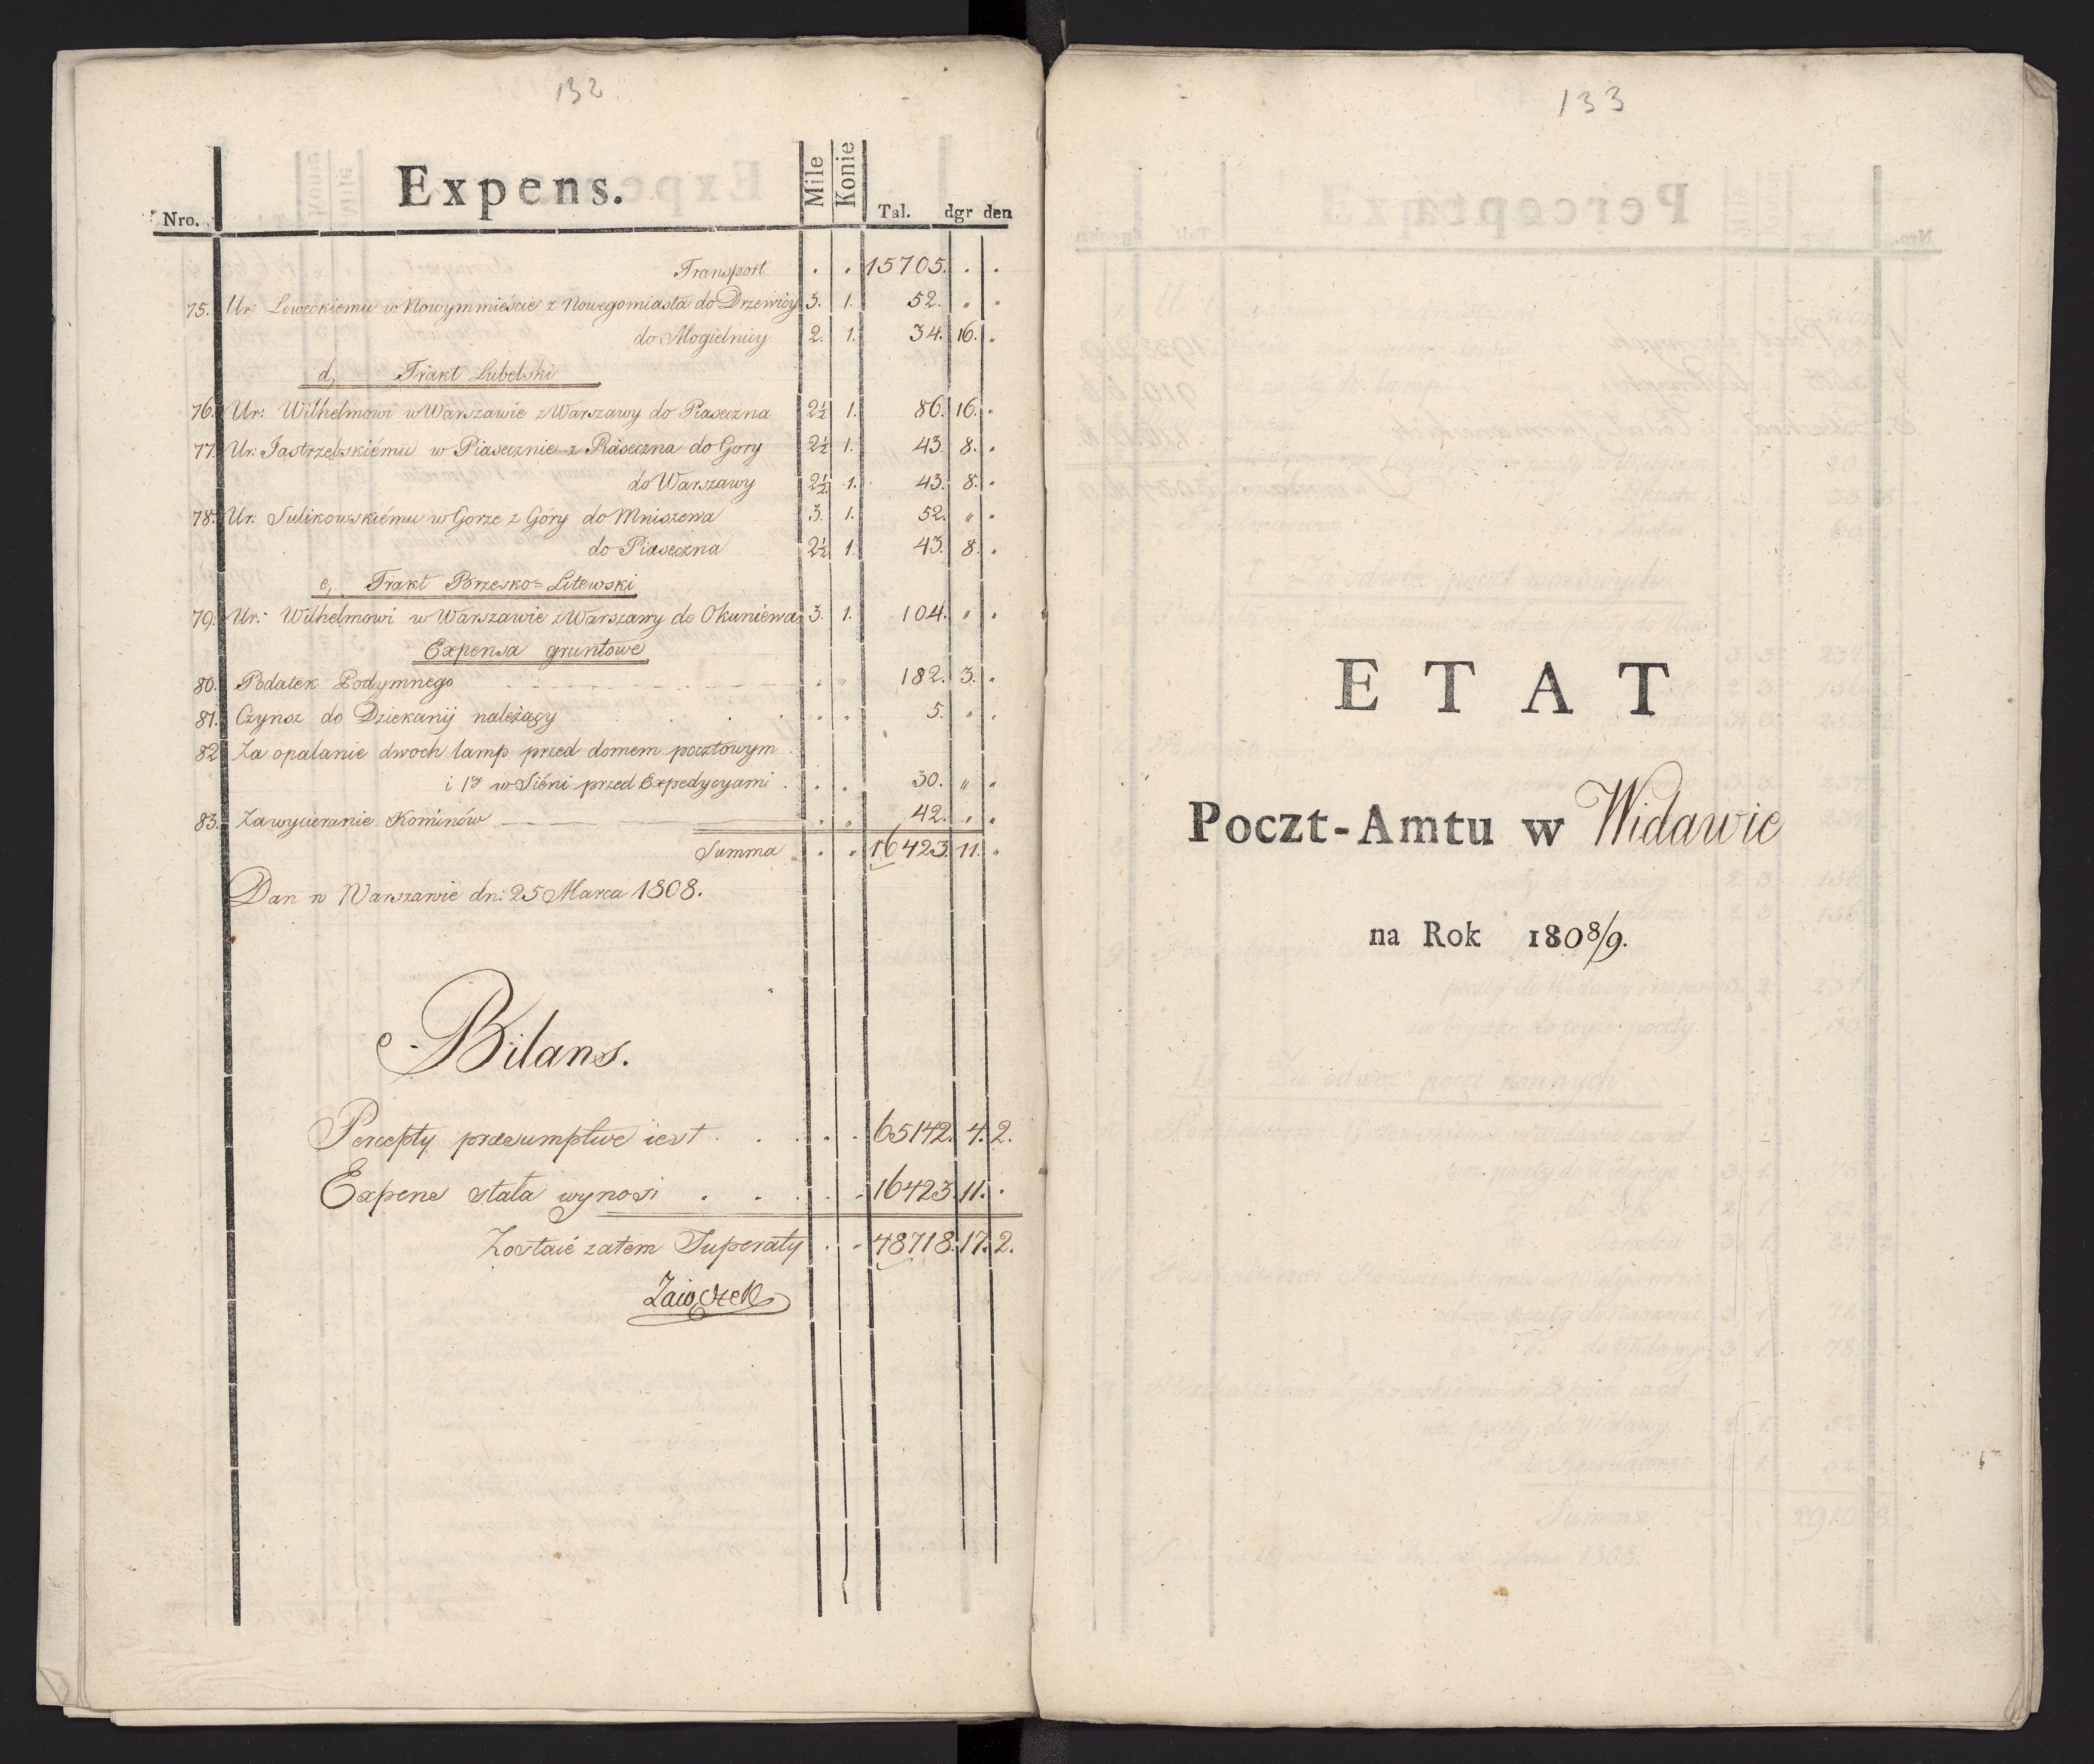 132
Nro. Expens. Mile Konie Tal. dgr den
Transport . . 15705. . .
75. Ur: Loweckiemu w Nowymmieście z Nowegomiasta do Drzewicy 3. 1. 52. " "
do Mogielnicy 2. 1. 34. 16. "
d, Trakt Lubelski
76. Ur: Wilhelmowi w Warszawie z Warszawy do Piaseczna 2½ 1. 86. 16. "
77. Ur: Jastrzębskiému w Piasecznie z Piaseczna do Gory 2½ 1. 43. 8. "
do Warszawy 2½ 1. 43. 8. "
78. Ur. Sulikowskiému w Gorze z Góry do Mniszewa 3. 1. 52. " "
do Piaseczna 2½ 1. 43. 8. "
e, Trakt Brzesko=Litewski
79. Ur: Wilhelmowi w Warszawie z Warszawy do Okuniewa 3. 1. 104. " "
Expensa gruntowe
80. Podatek Podymnego " " 182. 3. "
81. Czynsz do Dziekanij należący " " 5. " "
82 Za opalanie dwoch lamp przed domem pocztowym
i 1ey w Siéni przed Expedycyami . . 30. " "
83. Za wycieranie Kominów " " 42. " "
Summa " " 16423. 11. "
Dan w Warszawie dn: 25 Marca 1808.
Bilans.
Percepty praesumptive iest . . . . 65142. 4. 2.
Expens stała wynosi . . . . 16423. 11. .
Zostaié zatem Superaty . . 48718. 17. 2.
Zaiączek
133
ETAT
Poczt-Amtu w Widawie
na Rok 1808/9.